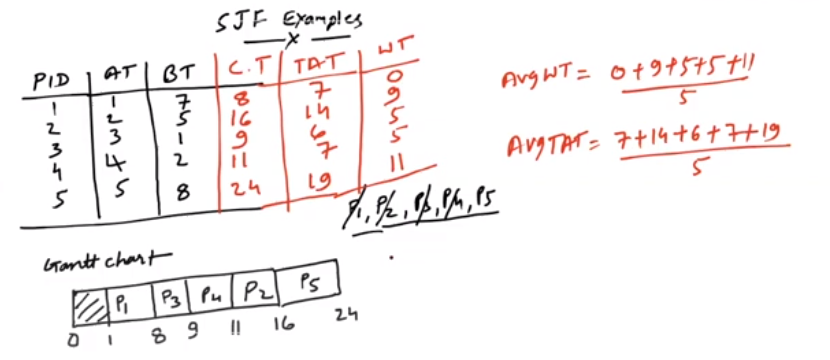 SJF Examples
x
PID AT BT C.T TAT WT
1 1 7 8 7 0
2 2 5 16 14 9
3 3 1 9 6 5
4 4 2 11 7 5
5 5 8 24 19 11
AvgWT = 0+9+5+5+11
5
AvgTAT = 7+14+6+7+19
5
P1, P2, P3, P4, P5
Gantt chart
P1 P3 P4 P2 P5
0 1 8 9 11 16 24